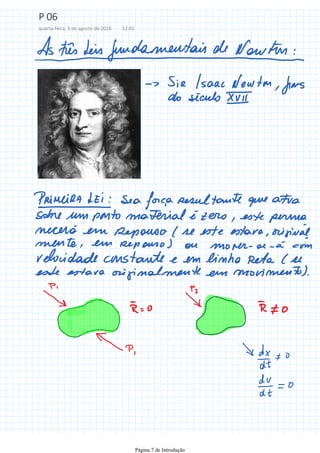 P 06
quarta-feira, 3 de agosto de 2016 12:01
As três leis fundamentais de Newton:
-> Sir Isaac Newton, fins
do século XVII
PRIMEIRA LEI: Se a força resultante que atua
sobre um ponto material é zero, este perma
necerá em repouso (se este estava, original
mente, em repouso) ou mover-se-á com
velocidade constante e em linha reta (se
este estava originalmente em movimento).
P₁
R̄ = 0
P₁
P₂
R̄ ≠ 0
dx/dt ≠ 0
dv/dt = 0
Página 7 de Introdução